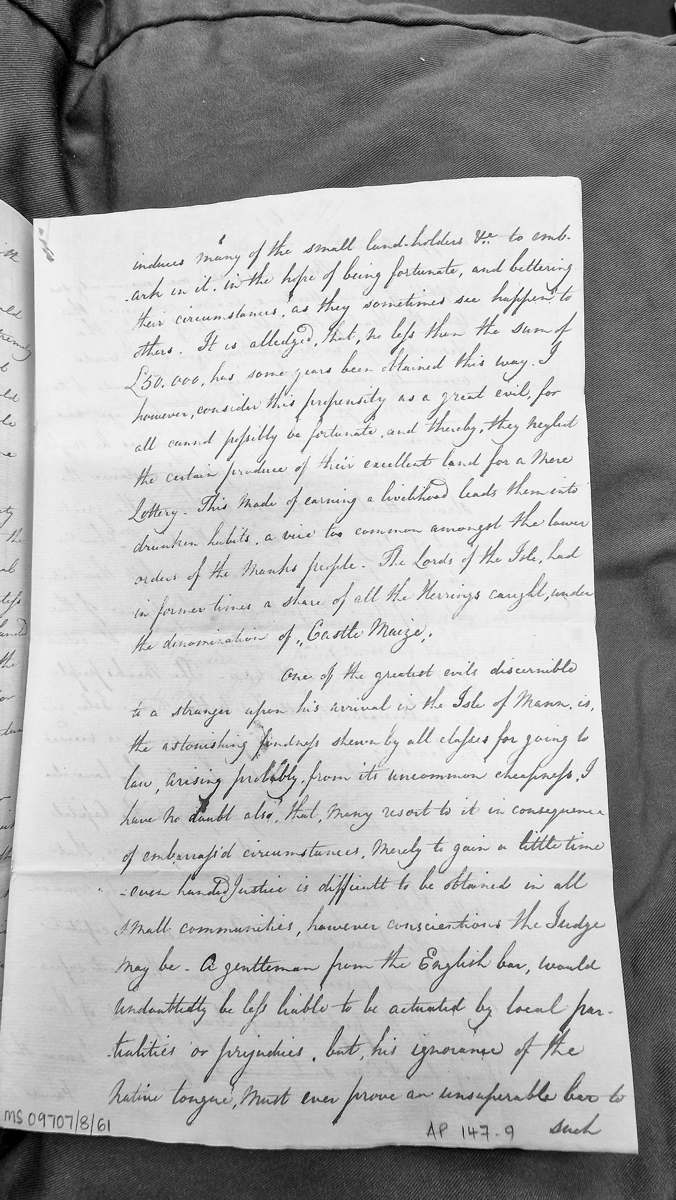 induces many of the small land-holders &c. to emb-
-ark in it, in the hope of being fortunate, and bettering
their circumstances, as they sometimes see happen to
others. It is alledged, that, no less than the sum of
£50.000, has some years been obtained this way. I
however, consider this propensity as a great evil, for
all cannot possibly be fortunate, and thereby, they neglect
the certain produce of their excellent land for a mere
Lottery. This mode of earning a livelihood leads them into
drunken habits, a vice too common amongst the lower
orders of the Manks people. The Lords of the Isle, had
in former times a share of all the Herrings caught, under
the denomination of "Castle Maize".
One of the greatest evils discernible
to a stranger upon his arrival in the Isle of Mann, is,
the astonishing fondness shewn by all classes for going to
law, arising probably, from its uncommon cheapness, I
have no doubt also, that, many resort to it in consequence
of embarrass'd circumstances, merely to gain a little time
-even handed Justice is difficult to be obtained in all
small communities, however conscientious the Judge
may be - A gentleman from the English bar, would
undoubtedly be less liable to be actuated by local par-
-tialities or prejudices, but, his ignorance of the
native tongue, must ever prove an unsuperable bar to
such
MS 09707/8/61
AP 147-9